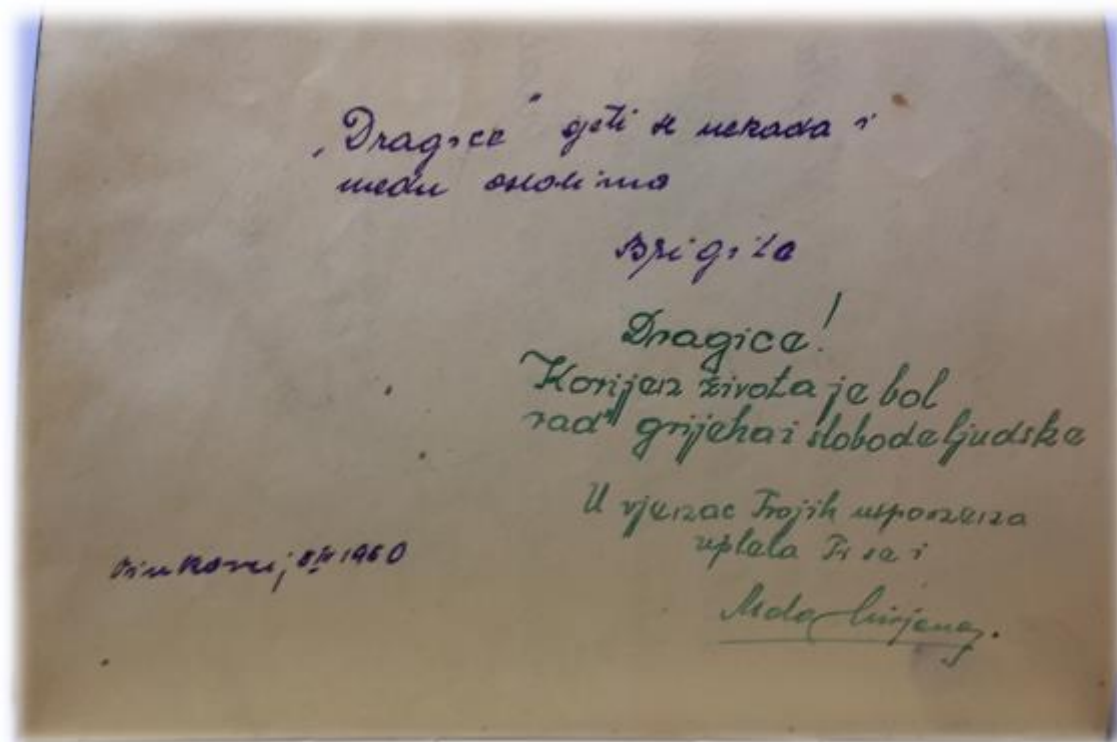 „Dragice" sjeti se nekada i
među ostalima
Brigita
Dragice!
Korijen života je bol
rad" grijeha i slobode ljudske
U vjenac Tvojih uspomena
uplela Ti se i
Vinkovci, 1960